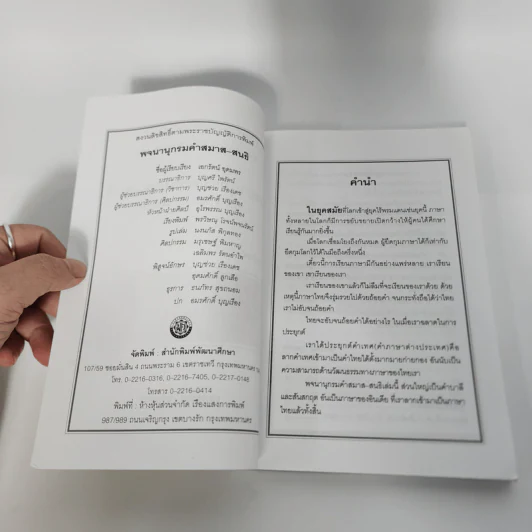 สงวนลิขสิทธิ์ตามพระราชบัญญัติการพิมพ์
พจนานุกรมคำสมาส-สนธิ
ชื่อผู้เรียบเรียง เอกรัตน์ อุดมพร
บรรณาธิการ บุญศรี ไพรัตน์
ผู้ช่วยบรรณาธิการ (วิชาการ) บุญช่วย เรืองเดช
ผู้ช่วยบรรณาธิการ (ศิลปกรรม) อมรศักดิ์ บุญเรือง
หัวหน้าฝ่ายศิลป์ อุไรพรรณ บุญเรือง
เรียงพิมพ์
รูปเล่ม
ศิลปกรรม
พิสูจน์อักษร บุญช่วย เรืองเดช
ธุรการ
ปก อมรศักดิ์ บุญเรือง
จัดพิมพ์ สำนักพิมพ์พัฒนาศึกษา
107/59 ซอยมั่นสิน 4 ถนนพระราม 6 เขตราชเทวี กรุงเทพมหานคร
โทร. 0-2216-0316, 0-2216-7405, 0-2217-0148
โทรสาร 0-2216-0414
พิมพ์ที่ : ห้างหุ้นส่วนจำกัด เรืองแสงการพิมพ์
987/989 ถนนเจริญกรุง เขตบางรัก กรุงเทพมหานคร
คำนำ
ในยุคสมัยที่โลกเข้าสู่ยุคไร้พรมแดนเช่นยุคนี้ ภาษา
ทั้งหลายในโลกก็มีการขยับขยายเปิดกว้างให้ผู้คนได้ศึกษา
เรียนรู้กันมากยิ่งขึ้น
เมื่อโลกเชื่อมโยงถึงกันหมด ผู้ยึดกุมภาษาได้ก็เท่ากับ
ยึดกุมโลกไว้ในมือถึงครึ่งหนึ่ง
เดี๋ยวนี้การเรียนภาษามีกันอย่างแพร่หลาย เราเรียน
ของเขา เขาเรียนของเรา
เราเรียนของเขาแล้วก็ไม่ลืมที่จะเรียนของเราด้วย ด้วย
เหตุนี้ภาษาไทยจึงรุ่มรวยไปด้วยถ้อยคำ จนกระทั่งถือได้ว่าไทย
เราไม่อับจนถ้อยคำ
ไทยจะอับจนถ้อยคำได้อย่างไร ในเมื่อเราฉลาดในการ
ประยุกต์
เราได้ประยุกต์คำเทศ(คำภาษาต่างประเทศ)คือ
ลากคำเทศเข้ามาเป็นคำไทยได้ตั้งมากมายก่ายกอง อันนับเป็น
ความสามารถด้านวัฒนธรรมทางภาษาของไทยเรา
พจนานุกรมคำสมาส-สนธิเล่มนี้ ส่วนใหญ่เป็นคำบาลี
และสันสกฤต อันเป็นภาษาของอินเดีย ที่เราลากเข้ามาเป็นภาษา
ไทยแล้วทั้งสิ้น